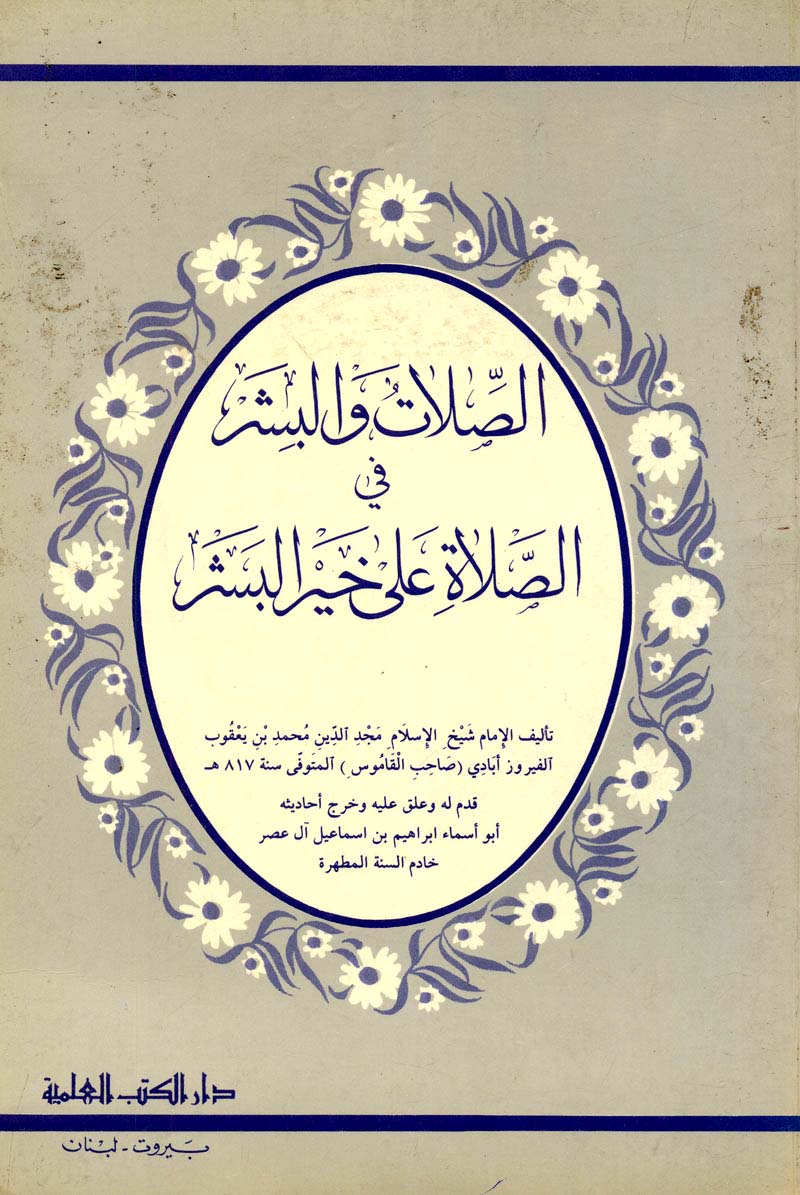 الصِّلاتُ وَالبِشَر
في
الصَّلاةِ عَلى خَيرِ البَشَر
تأليف الإمام شَيْخِ الإِسلَامِ مَجْدِ الدِّينِ مُحمدِ بْنِ يَعْقُوب
الفيروز أبادي (صَاحِبِ الْقَامُوسِ) المتوفّى سنة ٨١٧ هـ
قدم له وعلق عليه وخرج أحاديثه
أبو أسماء ابراهيم بن اسماعيل آل عصر
خادم السنة المطهرة
دار الكتب العلمية
بَيروت - لبْنان